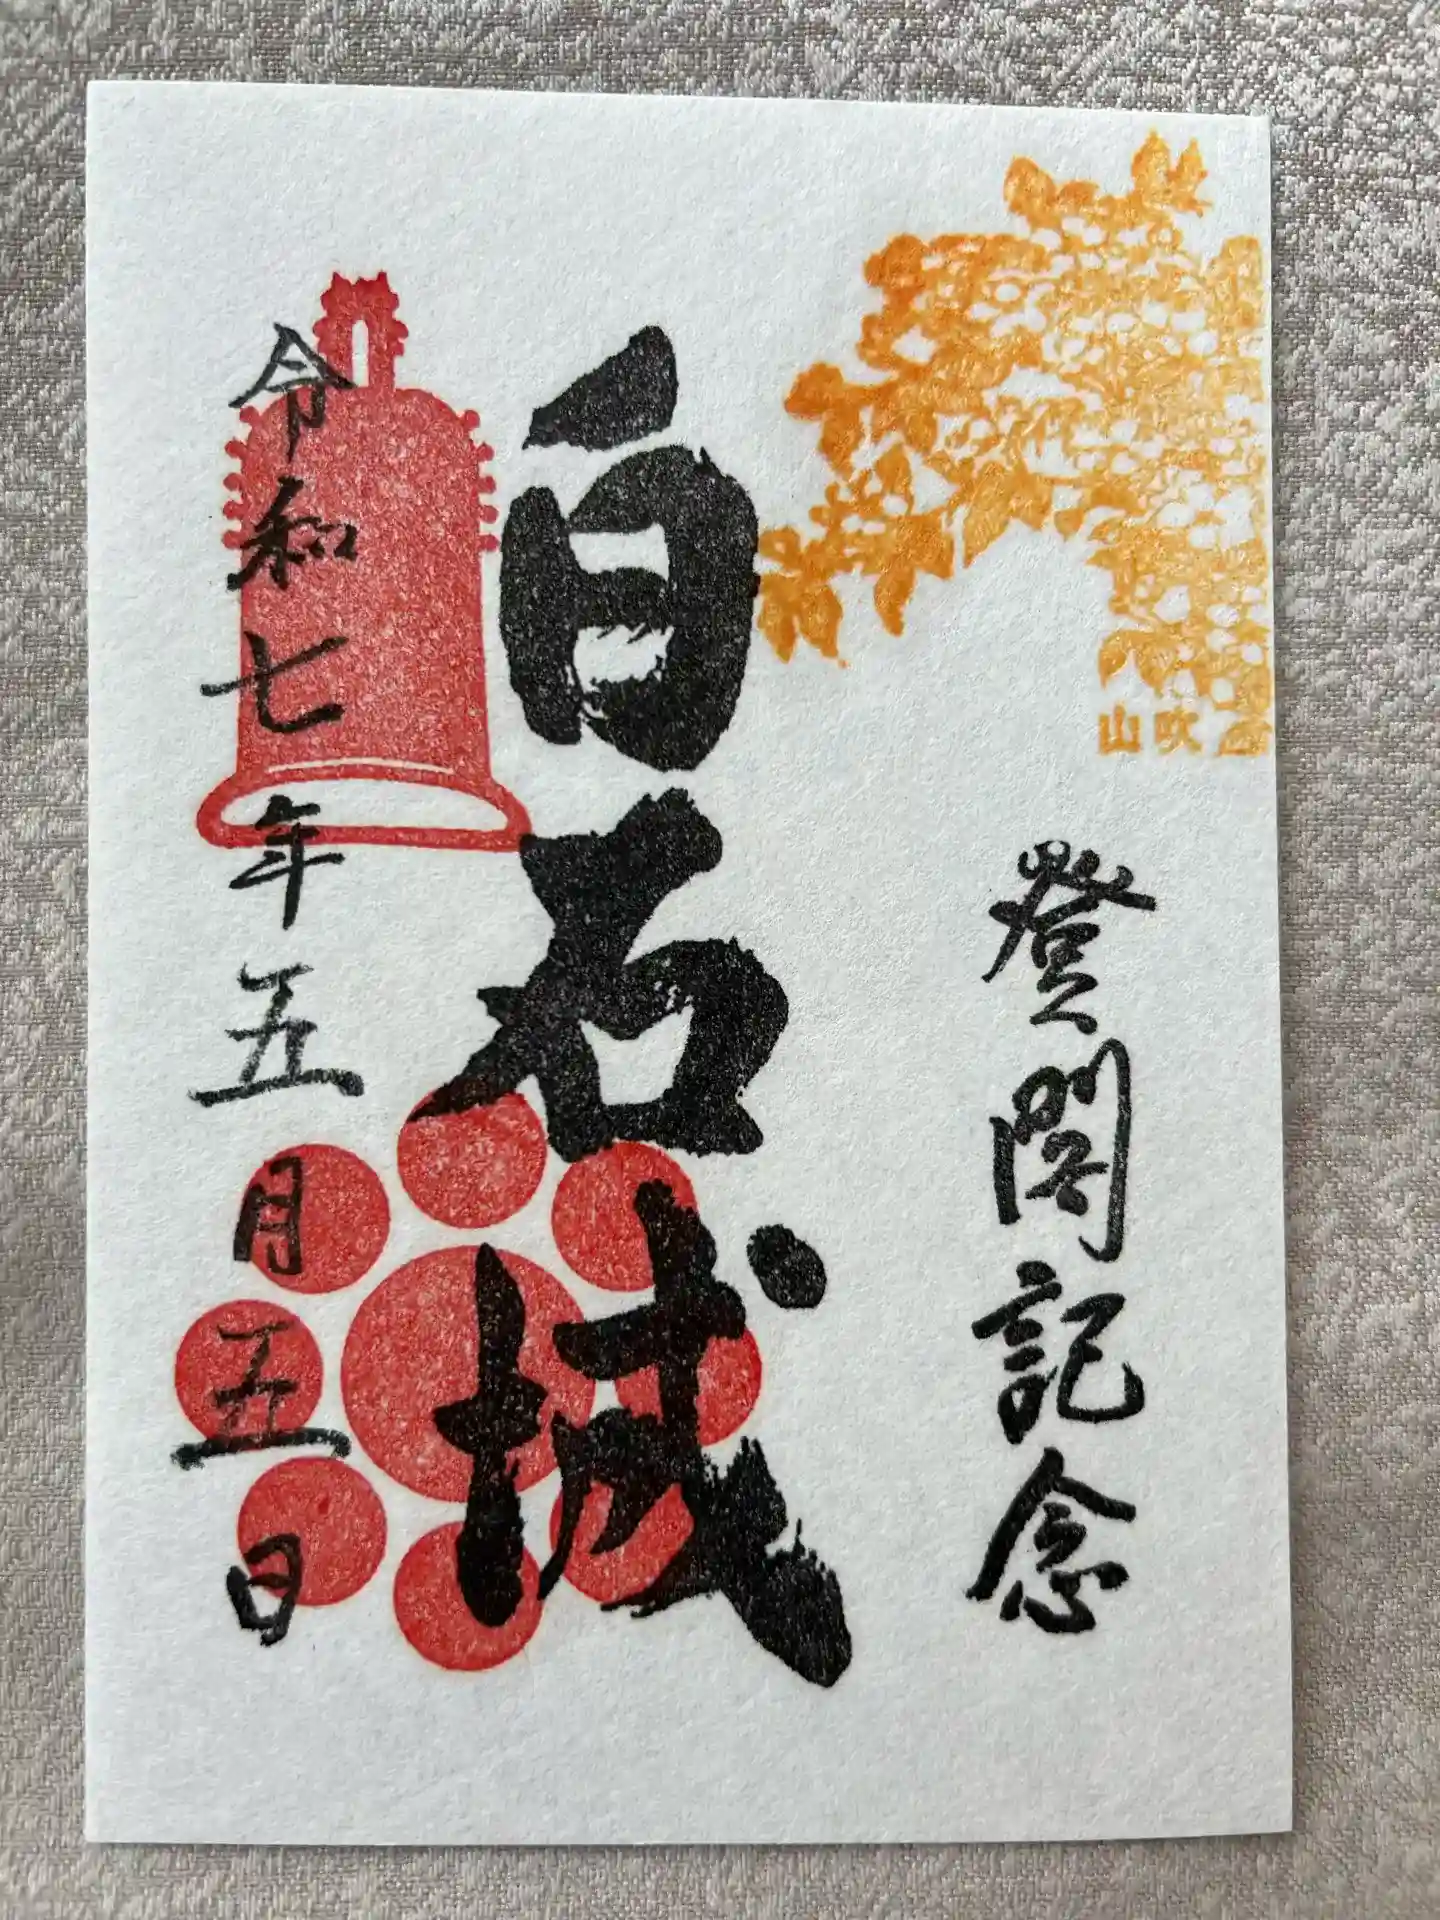 登閣記念
白石城
令和七年五月五日
山吹